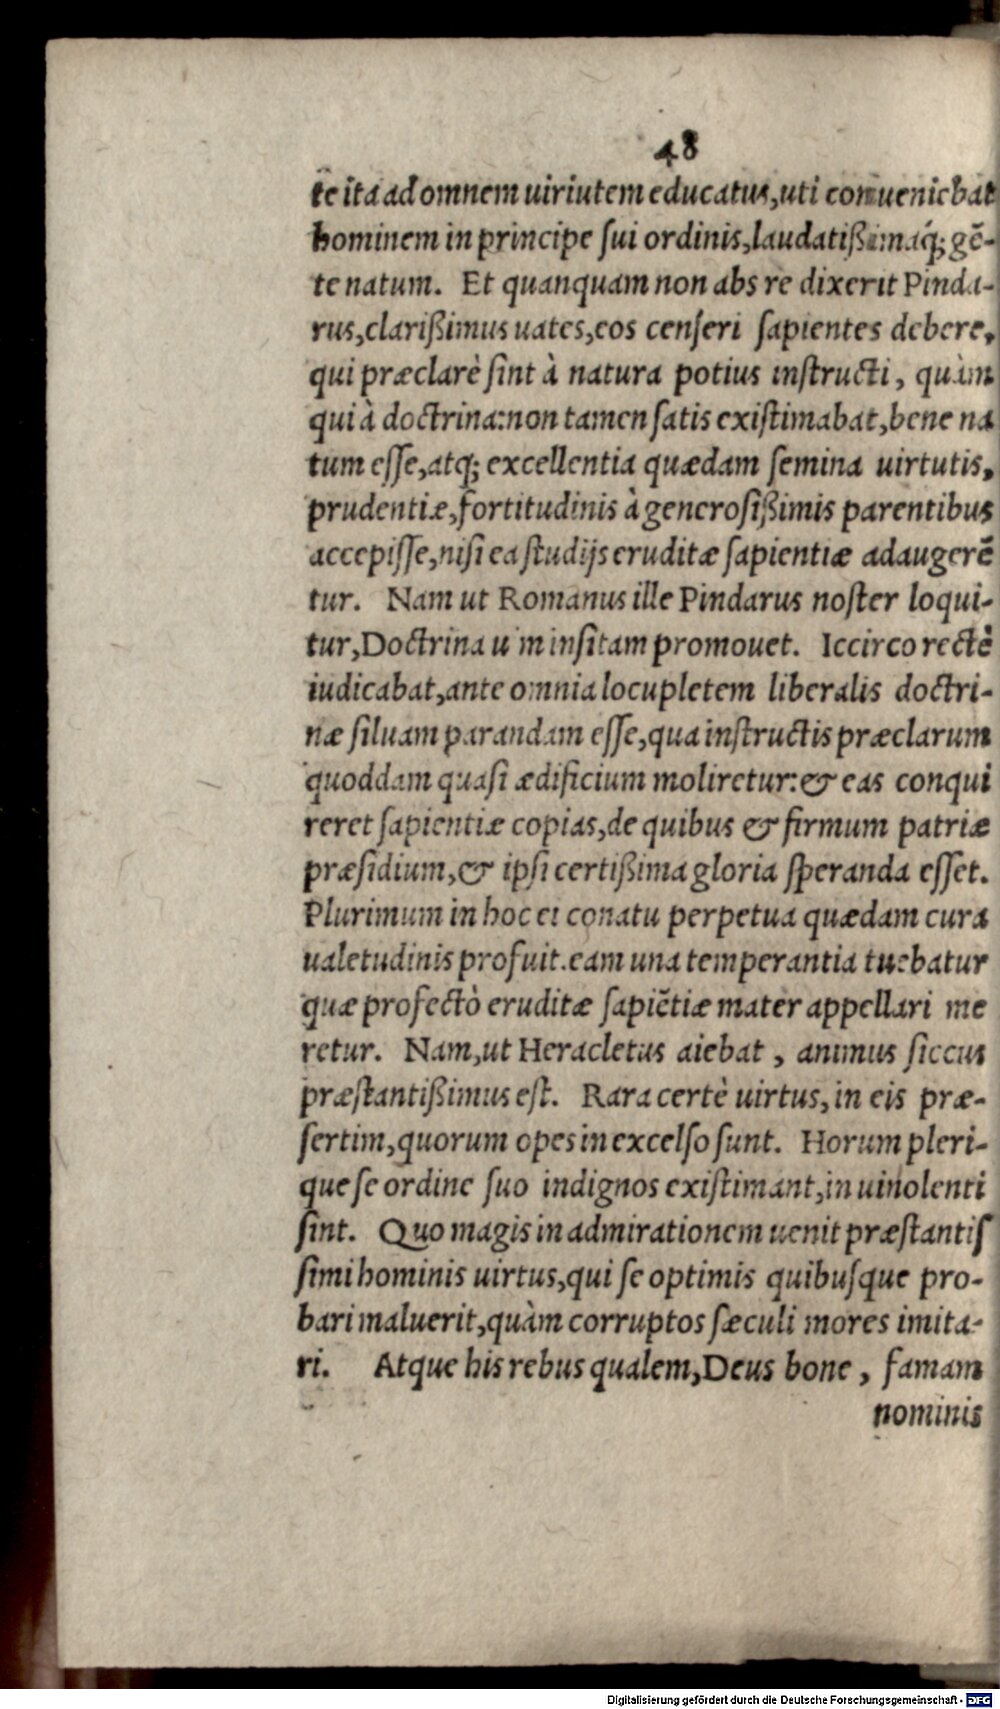 48
te ita ad omnem uirtutem educatus, uti conueniebat
hominem in principe sui ordinis, laudatißimaq́; gẽ-
te natum. Et quanquam non abs re dixerit Pinda-
rus, clarißimus uates, eos censeri sapientes debere,
qui præclarè sint à natura potius instructi, quàm
qui à doctrina: non tamen satis existimabat, bene na
tum esse, atq; excellentia quædam semina uirtutis,
prudentiæ, fortitudinis à generosißimis parentibus
accepisse, nisi ea studijs eruditæ sapientiæ adaugerẽ
tur. Nam ut Romanus ille Pindarus noster loqui-
tur, Doctrina uim insitam promouet. Iccirco rectè
iudicabat, ante omnia locupletem liberalis doctri-
næ siluam parandam esse, qua instructis præclarum
quoddam quasi ædificium moliretur: & eas conqui
reret sapientiæ copias, de quibus & firmum patriæ
præsidium, & ipsi certißima gloria speranda esset.
Plurimum in hoc ei conatu perpetua quædam cura
ualetudinis profuit. eam una temperantia tuebatur
quæ profectò eruditæ sapiẽtiæ mater appellari me
retur. Nam, ut Heracletus aiebat, animus siccus
præstantißimus est. Rara certè uirtus, in eis præ-
sertim, quorum opes in excelso sunt. Horum pleri-
que se ordine suo indignos existimant, in uinolenti
sint. Quo magis in admirationem uenit præstantis
simi hominis uirtus, qui se optimis quibusque pro-
bari maluerit, quàm corruptos sæculi mores imita-
ri. Atque his rebus qualem, Deus bone, famam
nominis
Digitalisierung gefördert durch die Deutsche Forschungsgemeinschaft - DFG